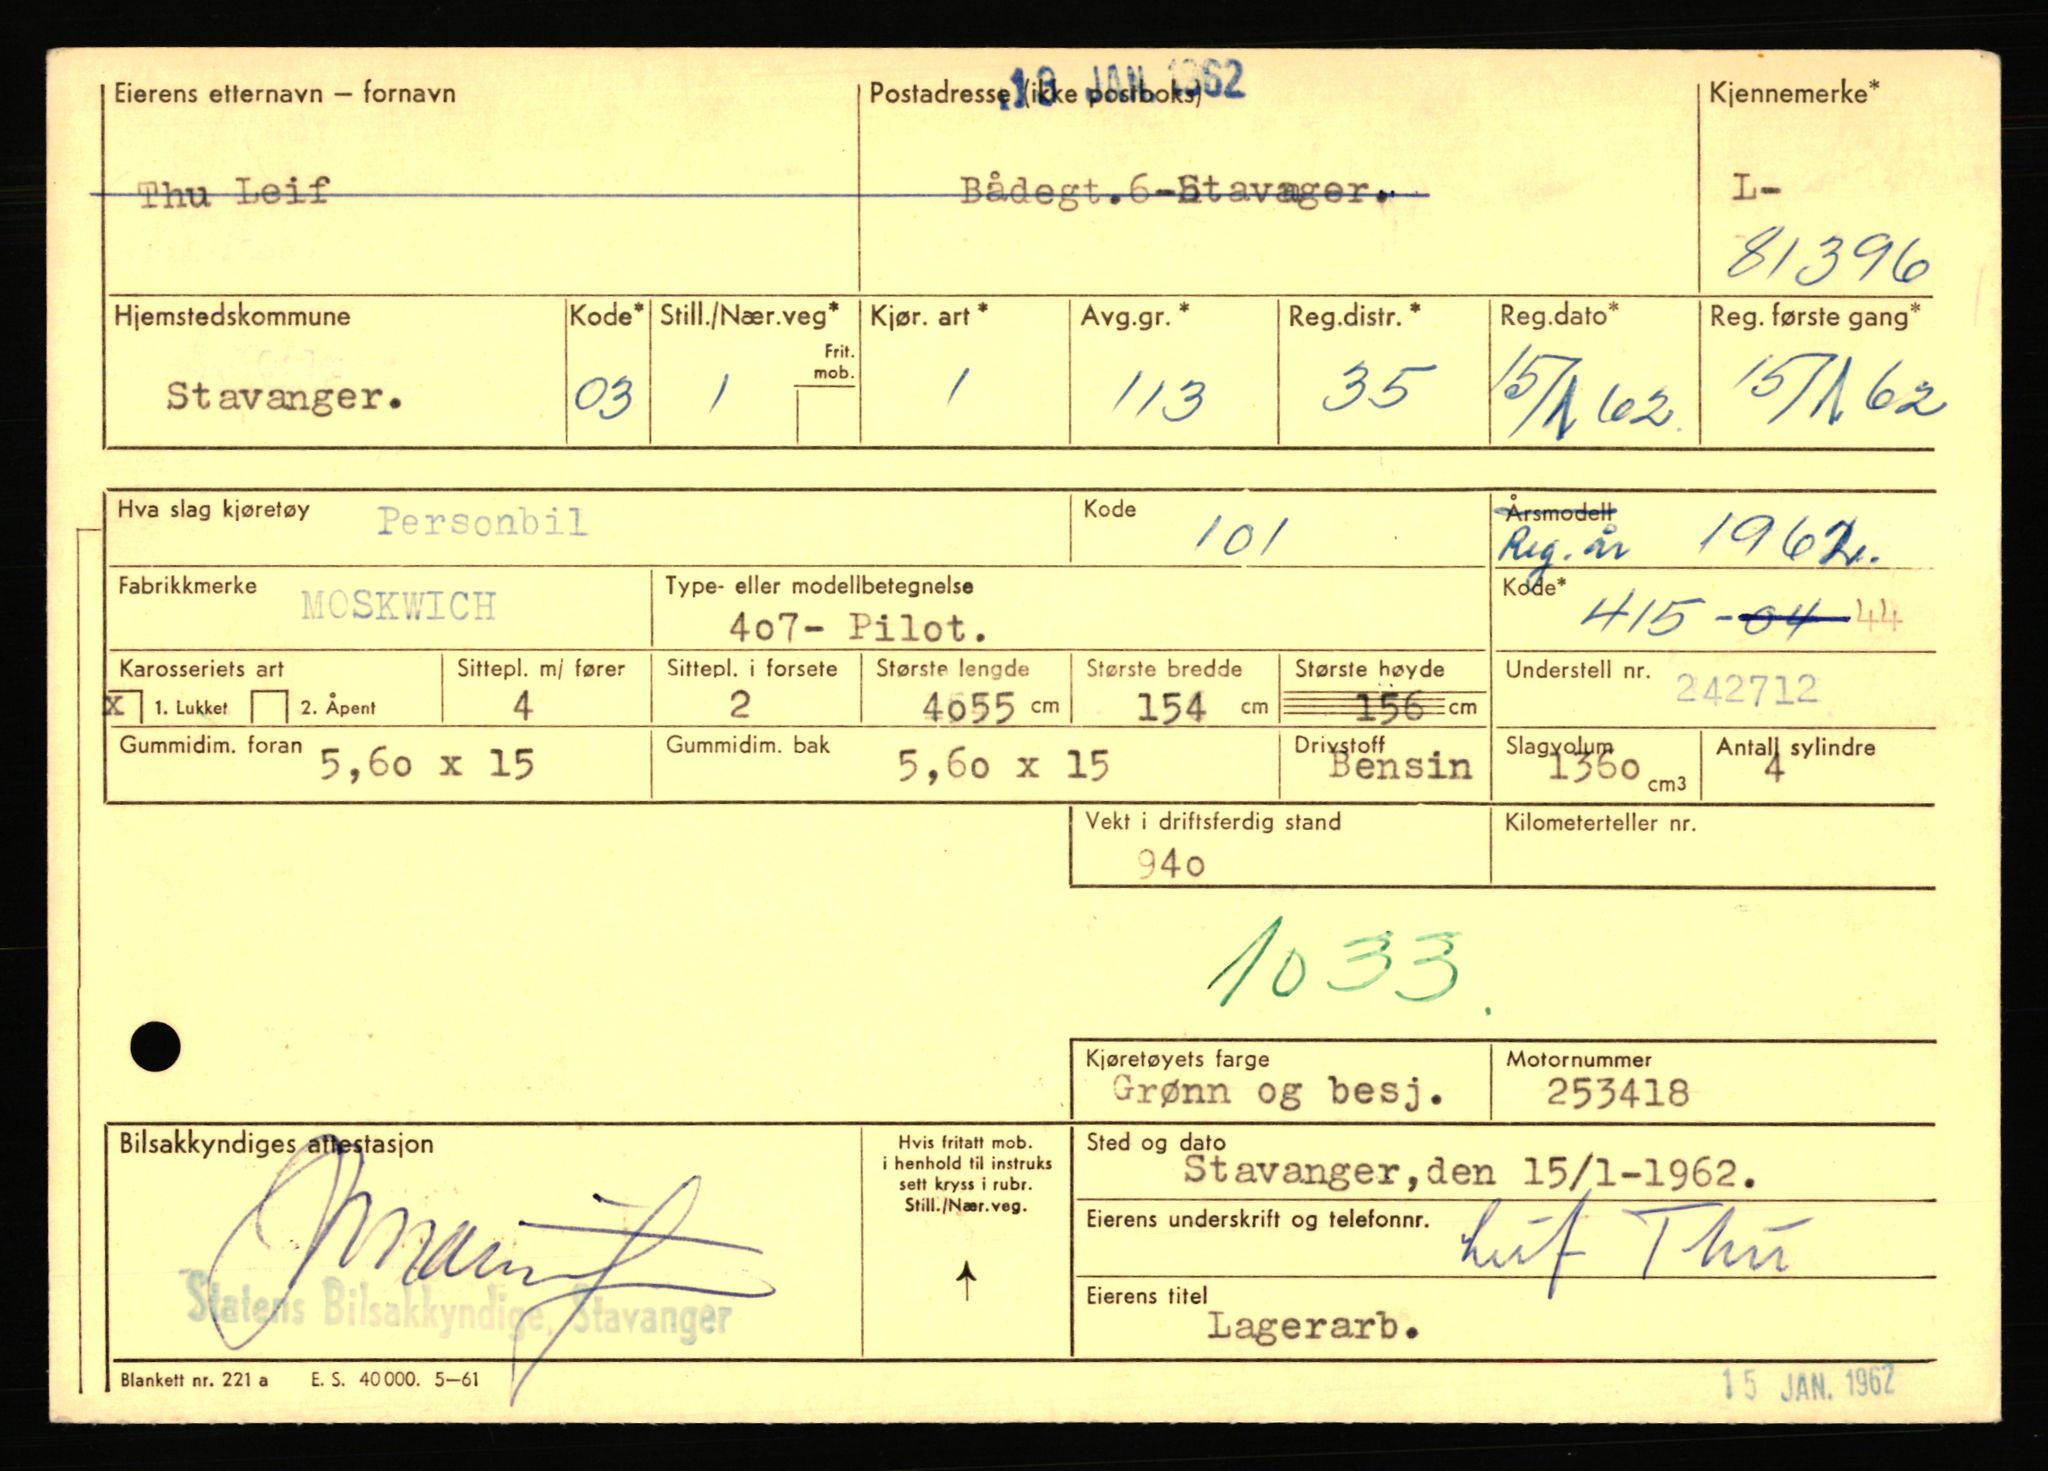 18 JAN. 1962
Eierens etternavn – fornavn Postadresse (ikke postboks) Kjennemerke*
Thu Leif Bådegt. 6- Stavanger. L-
81396
Hjemstedskommune Kode* Still./Nær.veg* Kjør. art* Avg.gr.* Reg.distr.* Reg.dato* Reg. første gang*
Frit. mob.
Stavanger. 03 1 1 113 35 15/1 62. 15/1 62
Hva slag kjøretøy Personbil Kode 101 Årsmodell Reg. år 1962.
Fabrikkmerke MOSKWICH Type- eller modellbetegnelse 407- Pilot. Kode* 415 - 04 44
Karosseriets art Sittepl. m/ fører Sittepl. i forsete Største lengde Største bredde Største høyde Understell nr. 242712
x 1. Lukket 2. Åpent 4 2 4055 cm 154 cm 156 cm
Gummidim. foran 5,60 x 15 Gummidim. bak 5,60 x 15 Drivstoff Bensin Slagvolum 1360 cm3 Antall sylindre 4
Vekt i driftsferdig stand Kilometerteller nr.
940
1033.
Kjøretøyets farge Motornummer
Grønn og besj. 253418
Bilsakkyndiges attestasjon
Statens Bilsakkyndige, Stavanger
Hvis fritatt mob.
i henhold til instruks
sett kryss i rubr.
Still./Nær.veg.
Sted og dato
Stavanger, den 15/1-1962.
Eierens underskrift og telefonnr. Leif Thu
Eierens titel
Lagerarb.
Blankett nr. 221 a E. S. 40 000. 5–61
15 JAN. 1962